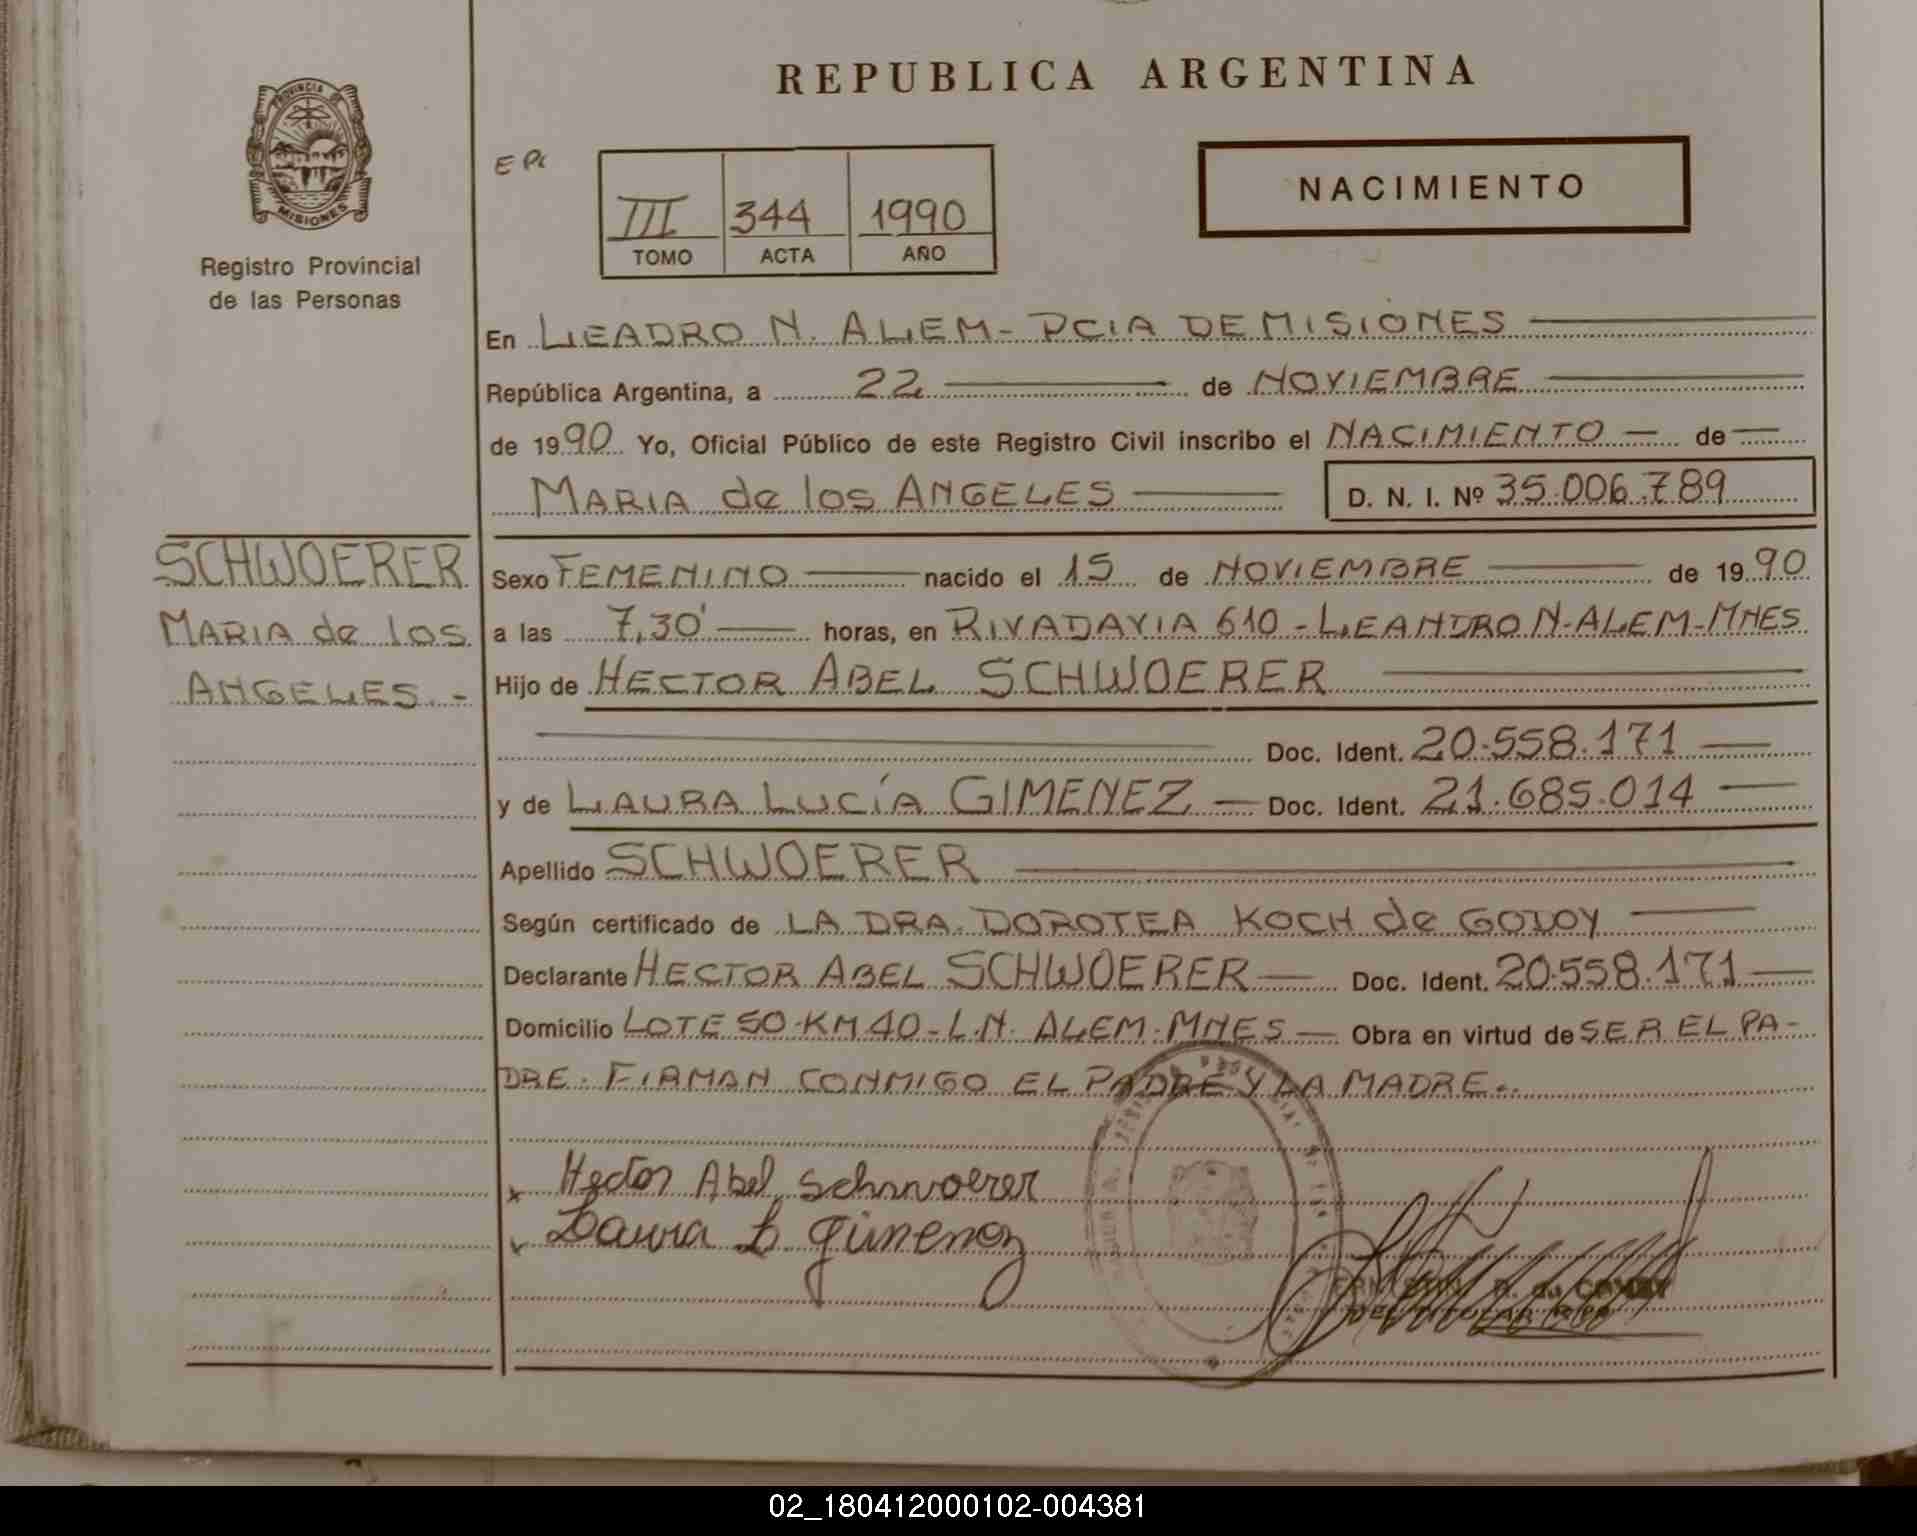 REPUBLICA ARGENTINA
PROVINCIA DE
MISIONES
Registro Provincial
de las Personas
III 344 1990
TOMO ACTA AÑO
NACIMIENTO
En LEADRO N. ALEM - PCIA DE MISIONES
República Argentina, a 22 de NOVIEMBRE
de 1990 Yo, Oficial Público de este Registro Civil inscribo el NACIMIENTO - de -
MARIA de los ANGELES D. N. I. Nº 35.006.789
SCHWOERER
MARIA de los
ANGELES.-
Sexo FEMENINO nacido el 15 de NOVIEMBRE de 1990
a las 7,30' horas, en RIVADAVIA 610 - LEANDRO N-ALEM-MNES
Hijo de HECTOR ABEL SCHWOERER
Doc. Ident. 20.558.171
y de LAURA LUCÍA GIMENEZ - Doc. Ident. 21.685.014
Apellido SCHWOERER
Según certificado de LA DRA. DOROTEA KOCH de GODOY
Declarante HECTOR ABEL SCHWOERER - Doc. Ident. 20.558.171
Domicilio LOTE 50-KM 40-L.N. ALEM-MNES - Obra en virtud de SER EL PA-
DRE. FIRMAN CONMIGO EL PADRE Y LA MADRE.-
Hector Abel Schwoerer
Laura L gimenez
02_180412000102-004381